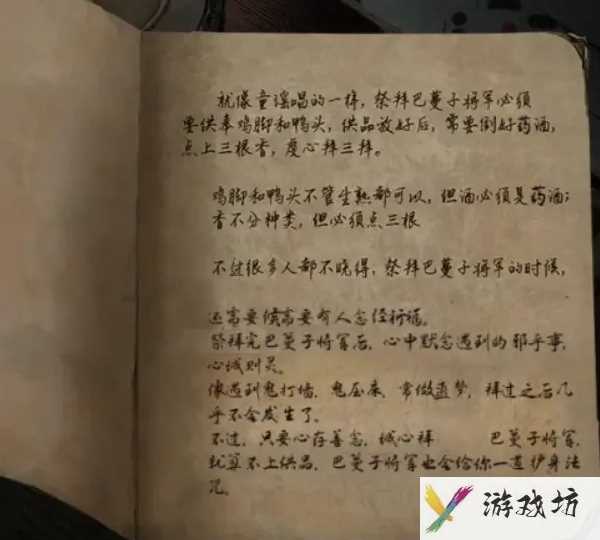 就像童谣唱的一样，祭拜巴蔓子将军必须
要供奉鸡脚和鸭头，供品放好后，常要倒好药酒，
点上三根香，虔心拜三拜。
鸡脚和鸭头不管生熟都可以，但酒必须是药酒；
香不分种类，但必须点三根
不过很多人都不晓得，祭拜巴蔓子将军的时候，
还需要候需要有人念经祈福。
祭拜完巴蔓子将军后，心中默念遇到的邪乎事，
心诚则灵。
像遇到鬼打墙，鬼压床，常做噩梦，拜过之后几
乎不会发生了。
不过，只要心存善念，诚心拜 巴蔓子将军，
就算不上供品，巴蔓子将军也会给你一道护身法
咒。
游戏坊